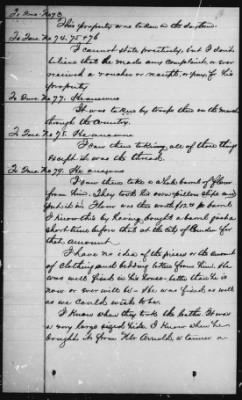 To Que. No 73.
This property was taken in the daytime.
To Ques No 74. 75 & 76
I cannot state positively, but I don't
believe that he made any complaint or ever
received a voucher or receipt, or pay for his
property.
To Ques No 77. He answers
It was taken by troops then on the march
through the Country.
To Ques No 78. He answers
I saw them taking all of these things
except it was the thread.
To Ques No 79. He answers
I saw them take a whole barrel of flour
from him. They took his own pillow slips and
put it in. Flour was then worth $22 pr barrel
I know this by having bought a barrel just a
short time before that at the city of Camden for
that amount.
I have no idea of the pieces or the amount
of clothing and bedding taken from him. He
was well fixed in his house better than he is
now or ever will be. He was fixed as well
as we could wish to be.
I know when they took the leather. It was
a very large sized hide. I know when he
bought it from Mr Arnold, a tanner